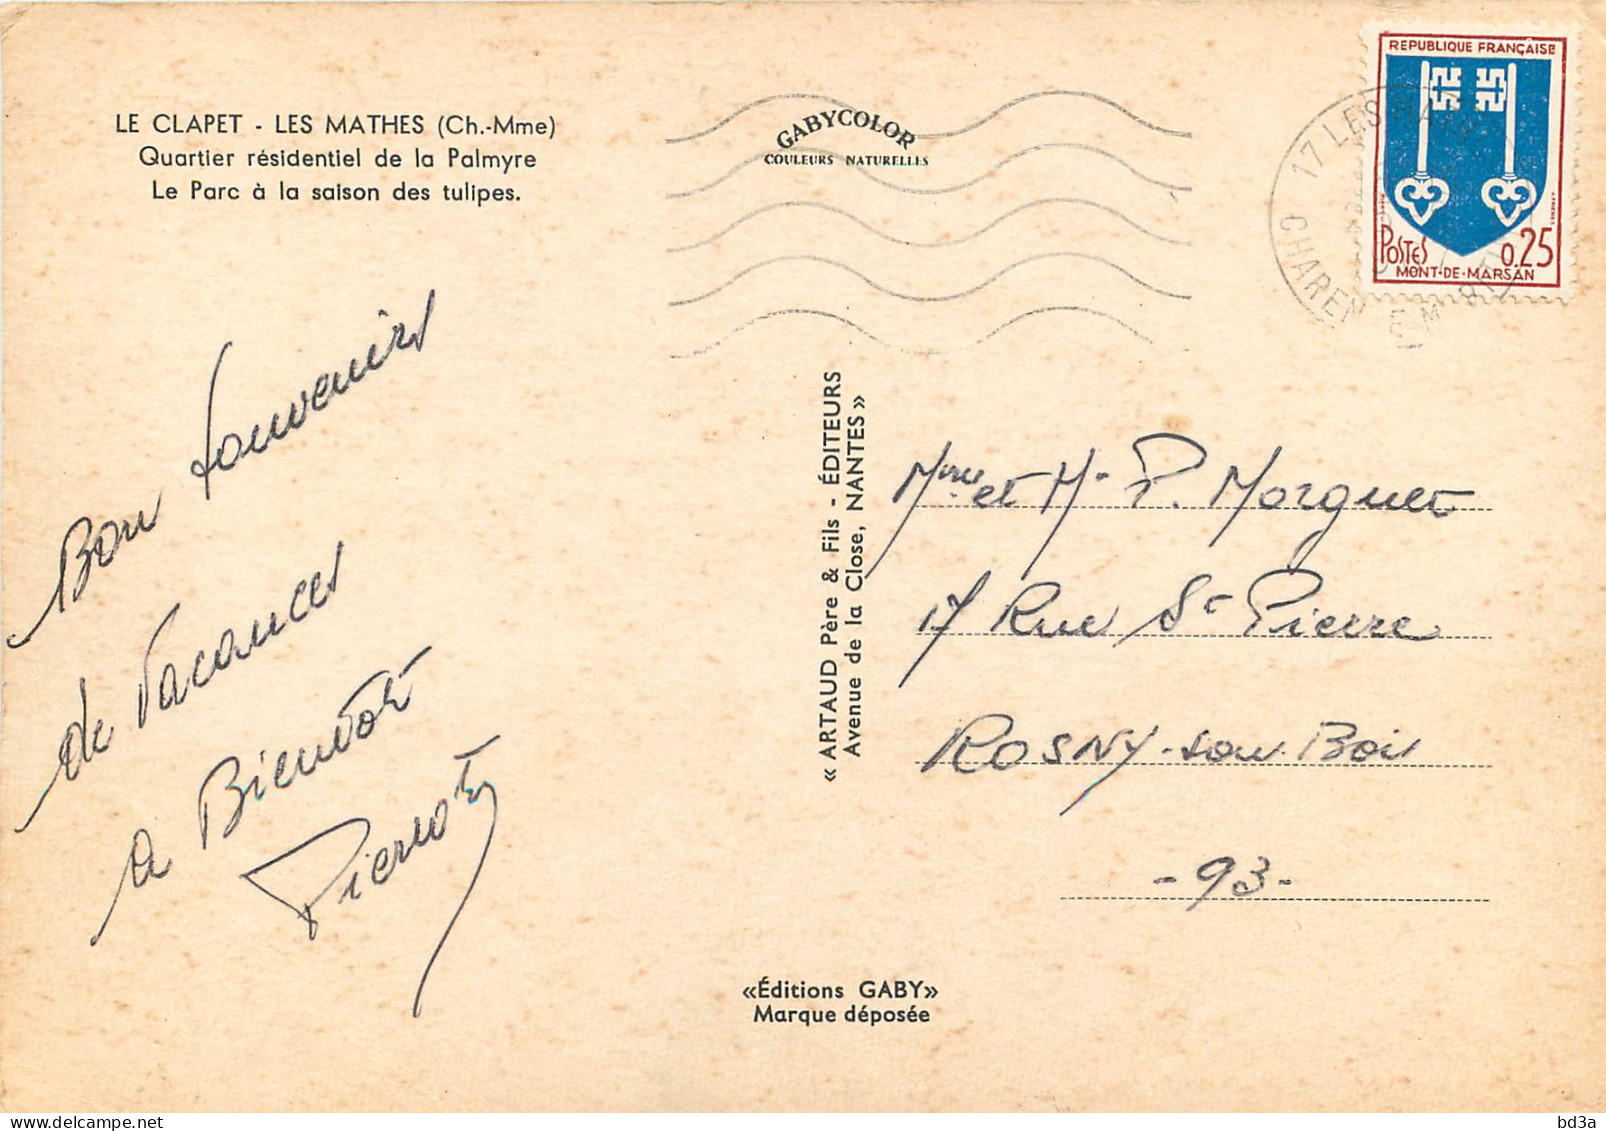 LE CLAPET - LES MATHES (Ch.-Mme)
Quartier résidentiel de la Palmyre
Le Parc à la saison des tulipes.
GABYCOLOR
COULEURS NATURELLES
17 LES MATHES
CHAREN
REPUBLIQUE FRANÇAISE
POSTES 0.25
MONT-DE-MARSAN
Bon souvenirs
de Vacances
a Bientôt
« ARTAUD Père & Fils - ÉDITEURS
Avenue de la Close, NANTES »
Mme et Mr P. Morguet
17 Rue St Pierre
ROSNY-sous-Bois
- 93 -
«Éditions GABY»
Marque déposée
bd3a